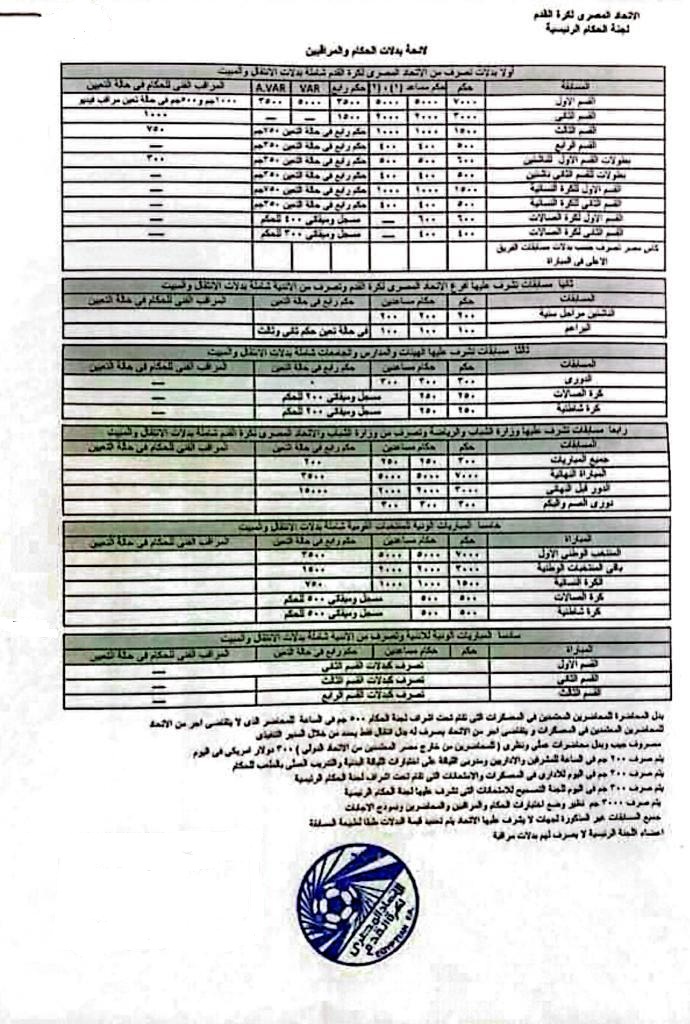 الاتحاد المصرى لكرة القدم
لجنة الحكام الرئيسية
لائحة بدلات الحكام والمراقبين
أولا بدلات تصرف من الاتحاد المصرى لكرة القدم شاملة بدلات الانتقال والمبيت
المسابقة حكم حكم مساعد (١)،(٢) حكم رابع VAR A.VAR المراقب الفنى للحكام فى حالة التعيين
القسم الأول ٧٠٠٠ ٥٠٠٠ ٥٠٠٠ ٣٥٠٠ ٥٠٠٠ ٣٥٠٠ ١٠٠٠جم و٥٠٠جم فى حالة تعين مراقب فيديو
القسم الثانى ٣٠٠٠ ٢٠٠٠ ٢٠٠٠ ١٥٠٠ — — ١٠٠٠
القسم الثالث ١٥٠٠ ١٠٠٠ ١٠٠٠ حكم رابع فى حالة التعين ٧٥٠جم ٧٥٠
القسم الرابع ٥٠٠ ٤٠٠ ٤٠٠ حكم رابع فى حالة التعين ٣٥٠جم —
بطولات القسم الاول للناشئين ٦٠٠ ٥٠٠ ٥٠٠ حكم رابع فى حالة التعين ٣٥٠جم ٣٠٠
بطولات للقسم الثانى ناشئين ٥٠٠ ٤٠٠ ٤٠٠ حكم رابع فى حالة التعين ٣٥٠جم —
القسم الأول للكرة النسائية ١٥٠٠ ١٠٠٠ ١٠٠٠ حكم رابع فى حالة التعين ٧٥٠جم —
القسم الثانى للكرة النسائية ٥٠٠ ٤٠٠ ٤٠٠ حكم رابع فى حالة التعين ٣٥٠جم —
القسم الاول لكرة الصالات ٦٠٠ ٦٠٠ — مسجل وميقاتى ٤٠٠ للحكم —
القسم الثانى لكرة الصالات ٤٠٠ ٤٠٠ — مسجل وميقاتى ٣٠٠ للحكم —
كأس مصر تصرف حسب بدلات مسابقات الفريق
الاعلى فى المباراة
ثانيا مسابقات تشرف عليها افرع الاتحاد المصرى لكرة القدم وتصرف من الاندية شاملة بدلات الانتقال والمبيت
المسابقات حكم حكام مساعدين حكم رابع فى حالة التعين المراقب الفنى للحكام فى حالة التعيين
الناشئين مراحل سنية ٢٠٠ ٢٠٠ ٢٠٠
البراعم ١٠٠ ١٠٠ ١٠٠ فى حالة تعين حكم ثانى وثالث
ثالثا مسابقات تشرف عليها الهيئات والمدارس والجامعات شاملة بدلات الانتقال والمبيت
المسابقات حكم حكام مساعدين حكم رابع فى حالة التعين المراقب الفنى للحكام فى حالة التعيين
الدورى ٣٠٠ ٣٠٠ ٣٠٠ ٠ —
كرة الصالات ٢٥٠ ٢٥٠ مسجل وميقاتى ٢٠٠ للحكم —
كرة شاطئية ٢٥٠ ٢٥٠ مسجل وميقاتى ٢٠٠ للحكم —
رابعا مسابقات تشرف عليها وزارة الشباب والرياضة وتصرف من وزارة الشباب والاتحاد المصرى لكرة القدم شاملة بدلات الانتقال والمبيت
المسابقات حكم حكام مساعدين حكم رابع فى حالة التعين المراقب الفنى للحكام فى حالة التعيين
جميع المباريات ٣٠٠ ٢٥٠ ٢٥٠ ٢٠٠
المباراة النهائية ٧٠٠٠ ٥٠٠٠ ٥٠٠٠ ٣٥٠٠
الدور قبل النهائى ٣٠٠٠ ٢٠٠٠ ٢٠٠٠ ١٥٠٠٠
دورى الصم والبكم ٣٠٠ ٣٠٠ ٣٠٠
خامسا المباريات الودية للمنتخبات القومية شاملة بدلات الانتقال والمبيت
المباراة حكم حكام مساعدين حكم رابع فى حالة التعين المراقب الفنى للحكام فى حالة التعيين
المنتخب الوطنى الأول ٧٠٠٠ ٥٠٠٠ ٥٠٠٠ ٣٥٠٠
باقى المنتخبات الوطنية ٣٠٠٠ ٢٠٠٠ ٢٠٠٠ ١٥٠٠
الكرة النسائية ١٥٠٠ ١٠٠٠ ١٠٠٠ ٧٥٠
كرة الصالات ٥٠٠ ٥٠٠ مسجل وميقاتى ٥٠٠ للحكم
كرة شاطئية ٥٠٠ ٥٠٠ مسجل وميقاتى ٥٠٠ للحكم
سادسا المباريات الودية للاندية وتصرف من الاندية شاملة بدلات الانتقال والمبيت
المباراة حكم حكام مساعدين حكم رابع فى حالة التعين المراقب الفنى للحكام فى حالة التعيين
القسم الاول تصرف كبدلات القسم الثانى —
القسم الثانى تصرف كبدلات القسم الثالث —
القسم الثالث تصرف كبدلات القسم الرابع —
بدل المحاضرة للمحاضرين المعتمدين فى المعسكرات التى تقام تحت اشراف لجنة الحكام ٥٠٠ جم فى الساعة للمحاضر الذى لا يتقاضى اجر من الاتحاد
للمحاضرين المعتمدين فى المعسكرات و يتقاضى اجر من الاتحاد يصرف له بدل انتقال فقط يسدد من خلال المدير التنفيذى
مصروف جيب وبدل محاضرات عملى ونظرى (للمحاضرين من خارج مصر المعتمدين من الاتحاد الدولى) ٣٠٠ دولار امريكى فى اليوم
يتم صرف ٢٠٠ جم فى الساعة للمشرفين والاداريين ومدربى اللياقة على اختبارات اللياقة البدنية والتدريب العملى بالملعب للحكام
يتم صرف ٣٠٠ جم فى اليوم للادارى فى المعسكرات والامتحانات التى تقام تحت اشراف لجنة الحكام الرئيسية
يتم صرف ٣٠٠ جم فى اليوم للجنة التصحيح للامتحانات التى تشرف عليها لجنة الحكام الرئيسية
يتم صرف ٣٠٠٠ جم نظير وضع اختبارات الحكام والمراقبين والمحاضرين ونموذج الاجابات
جميع المسابقات غير المذكورة لجهات لا يشرف عليها الاتحاد يتم تحديد قيمة البدلات طبقا لطبيعة المسابقة
اعضاء اللجنة الرئيسية لا يصرف لهم بدلات مراقبة
الاتحاد المصرى
لكرة القدم
EGYPTIAN F.A.